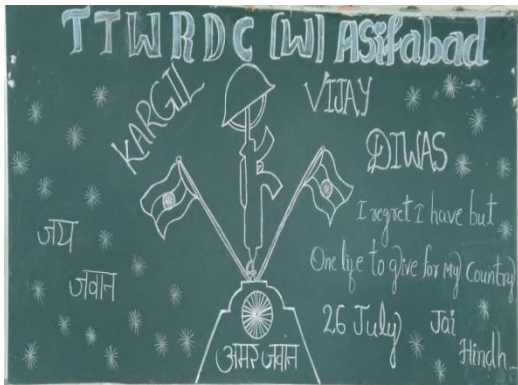 TTWRDC (W) Asifabad
KARGIL
VIJAY
DIWAS
जय
जवान
I regret I have but
One life to give for My Country
26 July Jai
Hindh...
अमर जवान